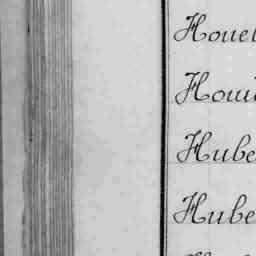 Houel
Houi
Hube
Hube